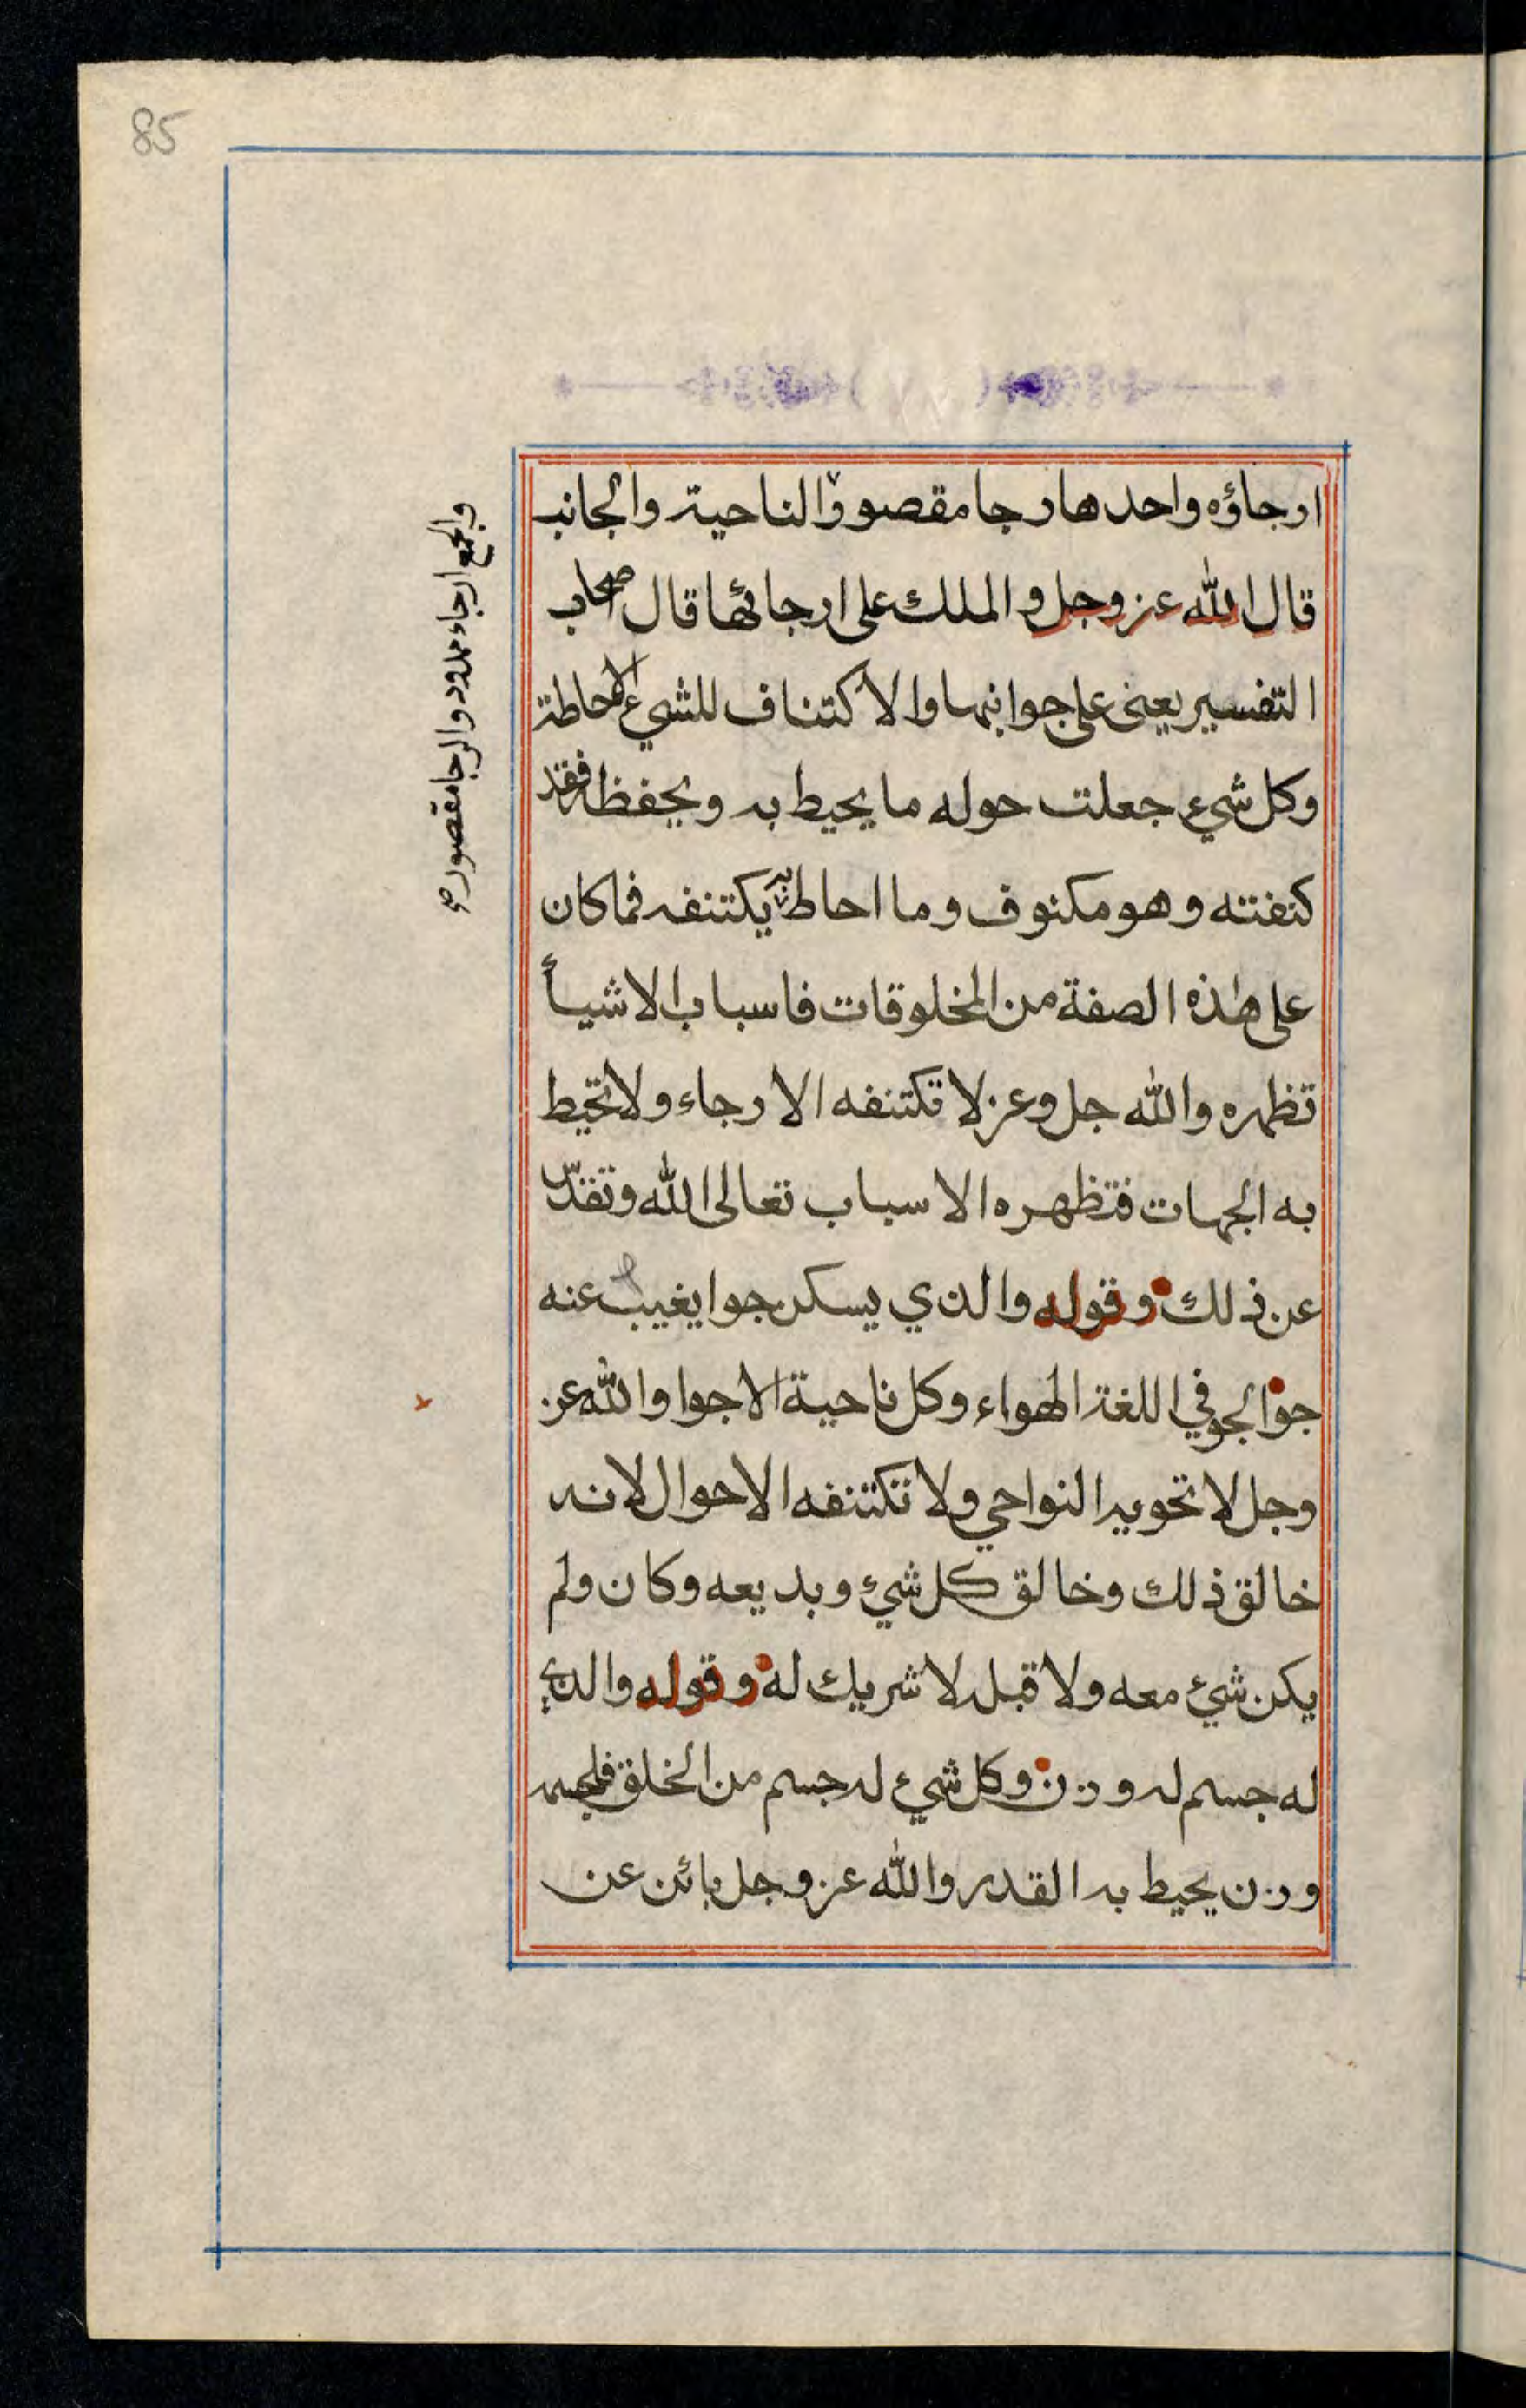 85
ارجاؤه واحدها رجا مقصور والناحية والجانب
قال الله عز وجل والملك على ارجائها قال اصحاب
التفسير يعني على جوانبها والاكتناف للشيء الاحاطة
وكل شيء جعلت حوله ما يحيط به ويحفظه فقد
كنفته وهو مكنوف وما احاط به يكتنفه فما كان
على هذه الصفة من المخلوقات فاسباب الاشيأ
تظهره والله جل وعز لا تكتنفه الارجاء ولا تحيط
به الجهات فتظهره الاسباب تعالى الله وتقدّس
عن ذلك وقوله والذي يسكن جوا يغيب عنه
جو الجو في اللغة الهواء وكل ناحية الاجوا والله عز
وجل لا تحويه النواحي ولا تكتنفه الاحوال لانه
خالق ذلك وخالق كل شيء وبديعه وكان ولم
يكن شيء معه ولا قبله لا شريك له وقوله والذي
له جسم له وزن وكل شيء له جسم من الخلق فلجسمه
وزن يحيط به القدر والله عز وجل بائن عن
والجمع ارجاء ممدود والرجا مقصور صح